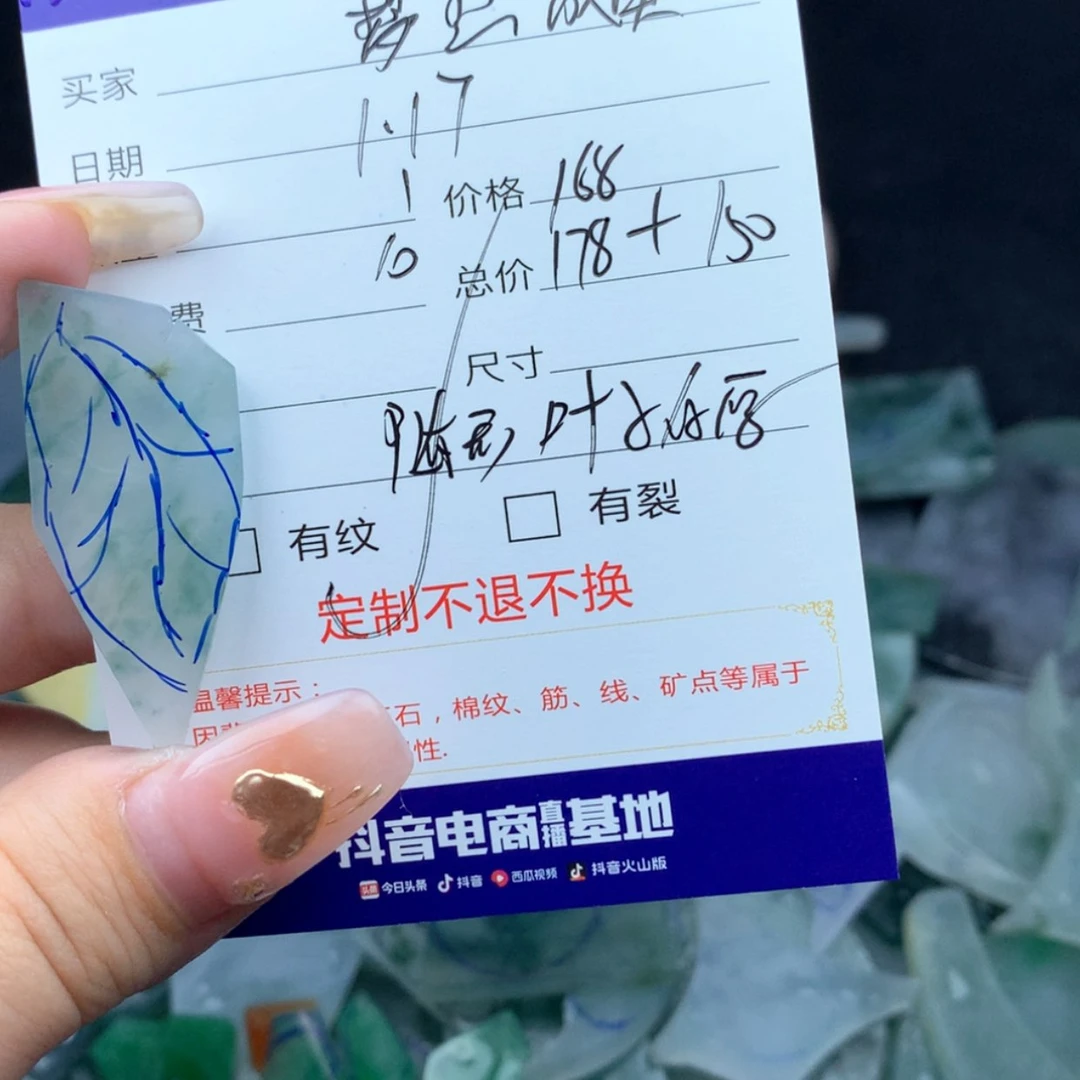 买家
日期 1.17
1 价格 168
费 10 总价 178 + 150
尺寸
叶子
有纹 有裂
定制不退不换
温馨提示：
石，棉纹、筋、线、矿点等属于
性.
抖音电商直播基地
头条 今日头条 抖音 西瓜视频 抖音火山版